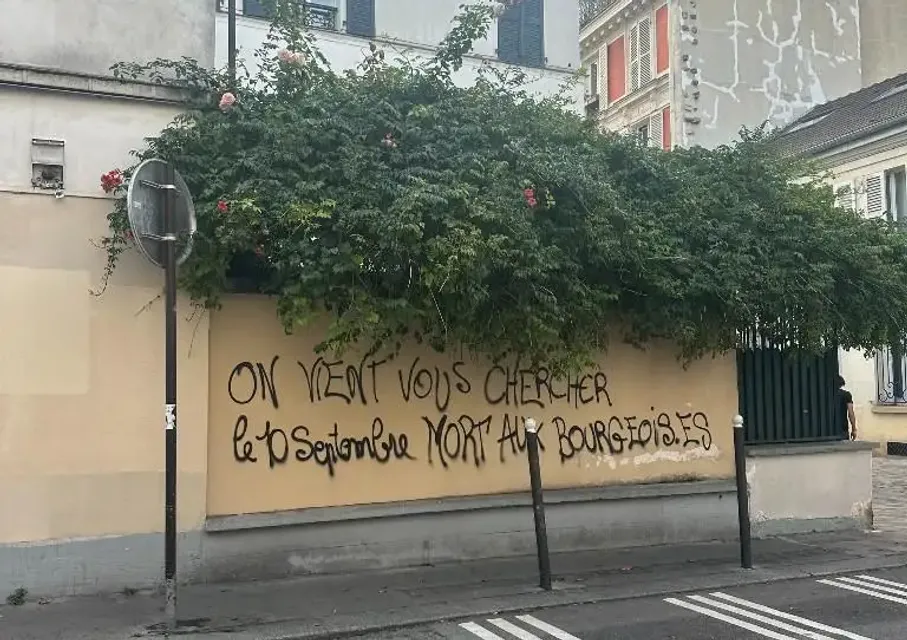 ON VIENT VOUS CHERCHER
le 10 Septembre MORT AUX BOURGEOIS.ES